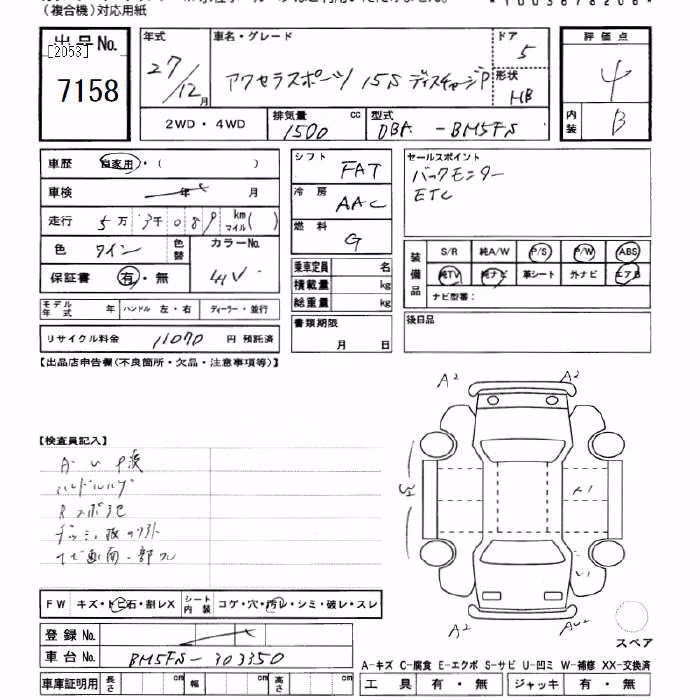 （複合機）対応用紙
*1003878206*
出品No.
[2053]
7158
年式 27/12月
車名・グレード アクセラスポーツ 15S ディスチャージP
ドア 5
形状 HB
2WD・4WD
排気量 1500 cc
型式 DBA-BM5FS
評価点 4
内装 B
車歴 自家用・( )
車検 年 月
走行 5万3千089 km マイル( )
色 ワイン
色替
カラーNo. 41V
保証書 有・無
シフト FAT
冷房 AAC
燃料 G
乗車定員 名
積載量 kg
総重量 kg
書類期限
月 日
セールスポイント
バックモニター
ETC
装備品
S/R 純A/W P/S P/W ABS
純TV 純ナビ 革シート 外ナビ エアB
ナビ型番：
後日品
モデル年式 年 ハンドル 左・右 ディーラー・並行
リサイクル料金 11070 円 預託済
【出品店申告欄(不良箇所・欠品・注意事項等)】
【検査員記入】
ハンドルハゲ
FW キズ・トビ石・割レX シート内装 コゲ・穴・汚レ・シミ・破レ・スレ
登録No.
車台No. BM5FS-303350
車庫証明用 長さ cm 幅 cm 高さ cm
A2 A2
A1
A2
スペア
A-キズ C-腐食 E-エクボ S-サビ U-凹ミ W-補修 XX-交換済
工具 有・無 ジャッキ 有・無